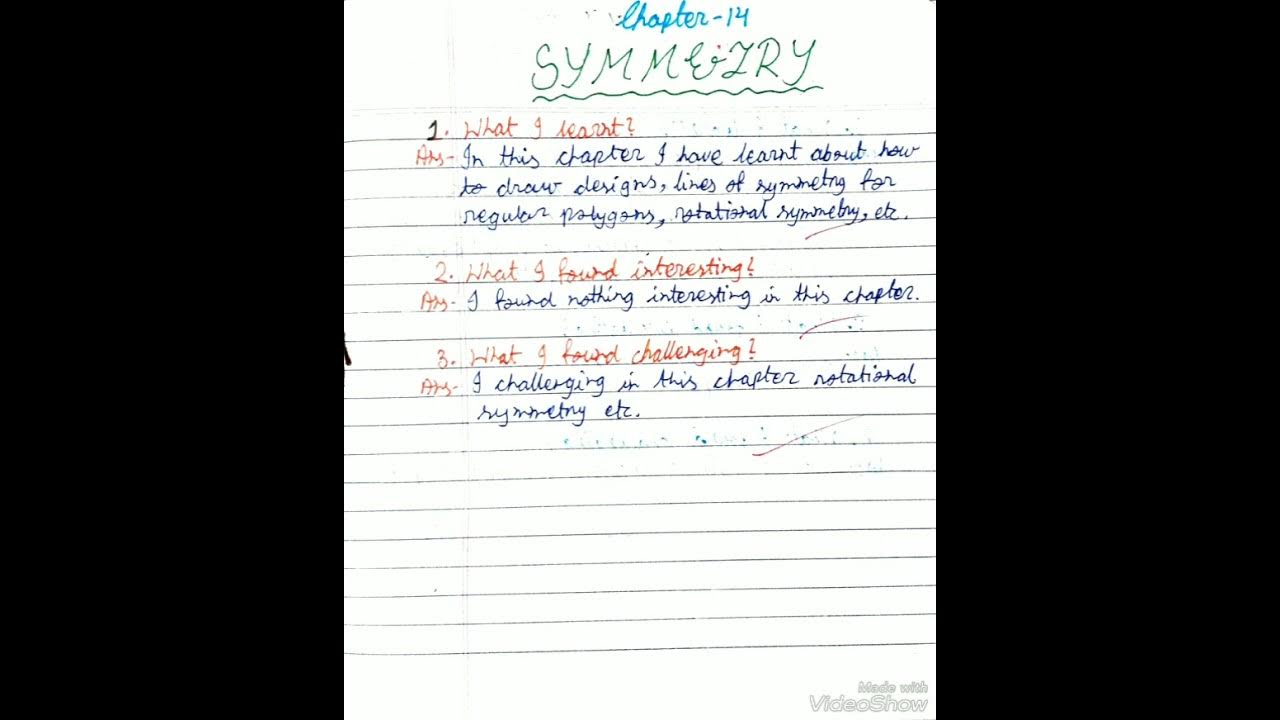 Chapter-14
SYMMETRY
1. What I learnt?
Ans- In this chapter I have learnt about how
to draw designs, lines of symmetry for
regular polygons, rotational symmetry, etc.
2. What I found interesting?
Ans- I found nothing interesting in this chapter.
3. What I found challenging?
Ans- I challenging in this chapter rotational
symmetry etc.
Made with
VideoShow